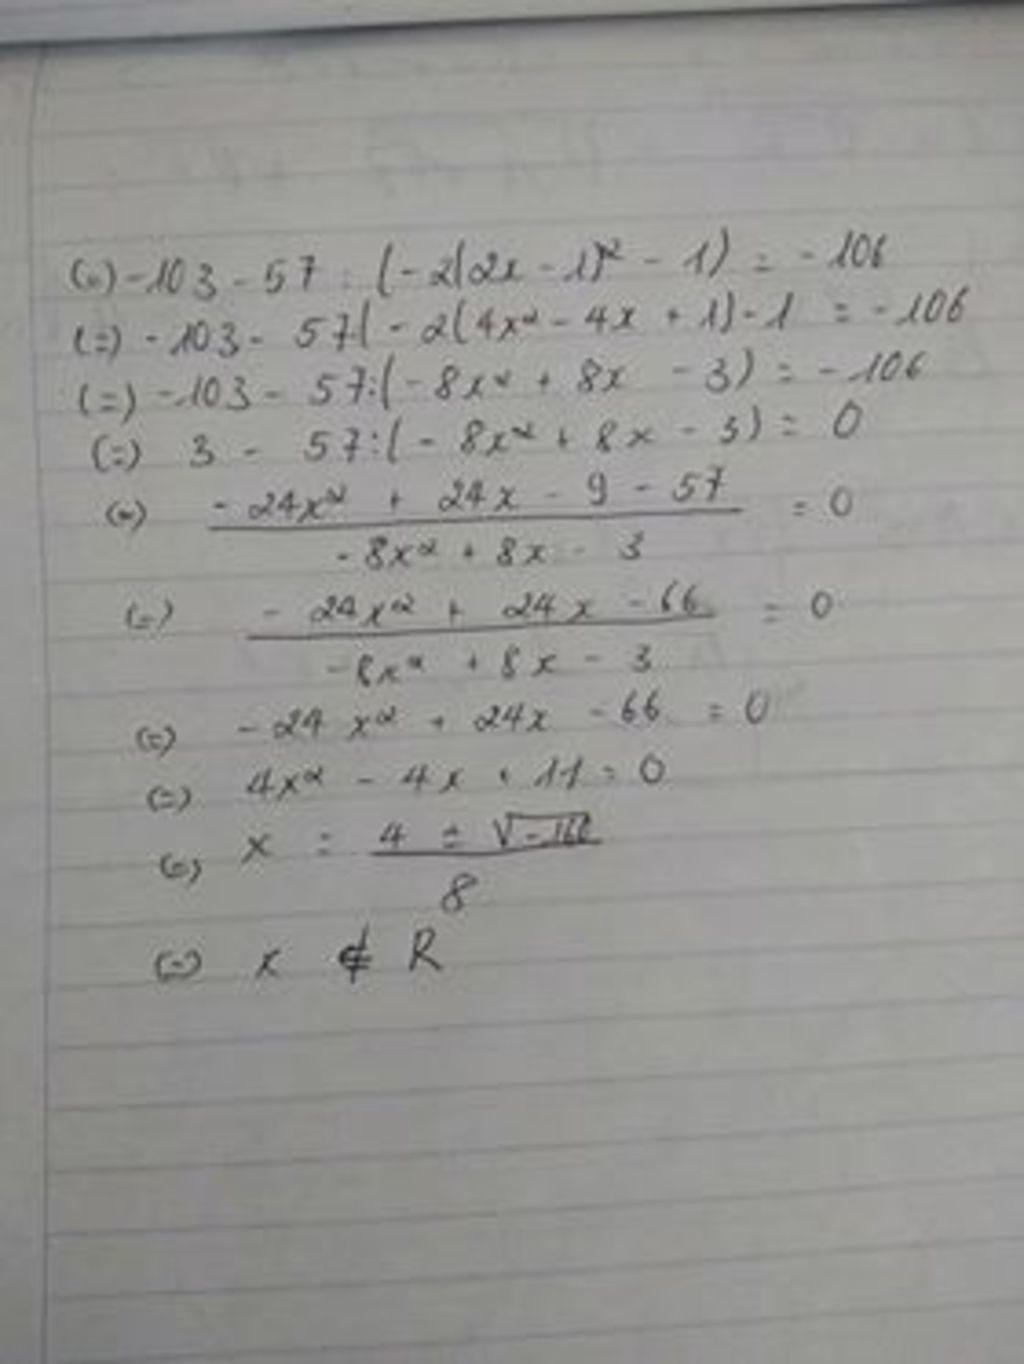 (=) -103 - 57 : (-2(2x - 1)² - 1) = -106
(=) -103 - 57:(-2(4x² - 4x + 1)-1 = -106
(=) -103 - 57:(-8x² + 8x - 3) = -106
(=) 3 - 57:(-8x² + 8x - 3) = 0
(=) -24x² + 24x - 9 - 57 = 0
-8x² + 8x - 3
(=) -24x² + 24x - 66 = 0
-8x² + 8x - 3
(=) -24x² + 24x - 66 = 0
(=) 4x² - 4x + 11 = 0
(=) x = 4 ± √-160
8
(=) x ∉ R